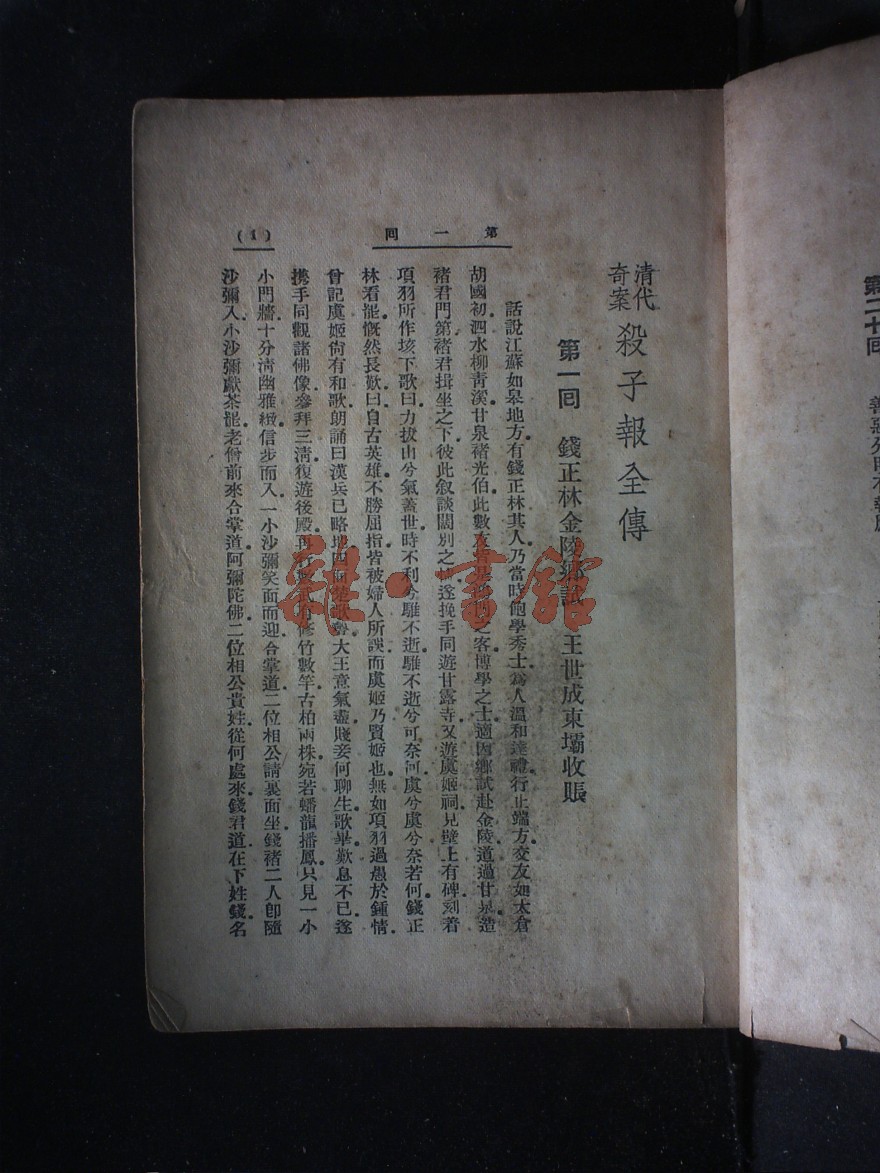 第一回
(1)
清代奇案 殺子報全傳
第一回 錢正林金陵鄉試 王世成東壩收賬
話說江蘇如臯地方有錢正林其人乃當時飽學秀士。爲人溫和達禮。行止端方。交友如太倉
胡國初。泗水柳靑溪。甘泉褚光伯。此數友皆是之客。博學之士。適因鄉試赴金陵。道過甘泉。造
褚君門第。褚君揖坐之下。彼此叙談闊別之。遂挽手同遊甘露寺。又遊虞姬祠。見壁上有碑。刻着
項羽所作垓下歌曰力拔山兮氣蓋世。時不利兮騅不逝。騅不逝兮可奈何。虞兮虞兮奈若何。錢正
林看罷。慨然長歎曰。自古英雄。不勝屈指。皆被婦人所誤。而虞姬乃賢姬也。無如項羽過愚於鍾情。
曾記虞姬尙有和歌。朗誦曰。漢兵已略地。四面楚歌聲。大王意氣盡。賤妾何聊生。歌畢。歎息不已。遂
携手同觀諸佛像。參拜三淸。復遊後殿。再行數武。有修竹數竿。古柏兩株。宛若蟠龍播鳳。只見一小
小門牆。十分淸幽雅緻。信步而入。一小沙彌笑面而迎。合掌道。二位相公請裏面坐。錢褚二人卽隨
沙彌入。小沙彌獻茶罷。老僧前來合掌道。阿彌陀佛。二位相公貴姓。從何處來。錢君道。在下姓錢名
雜·書館
第二十回